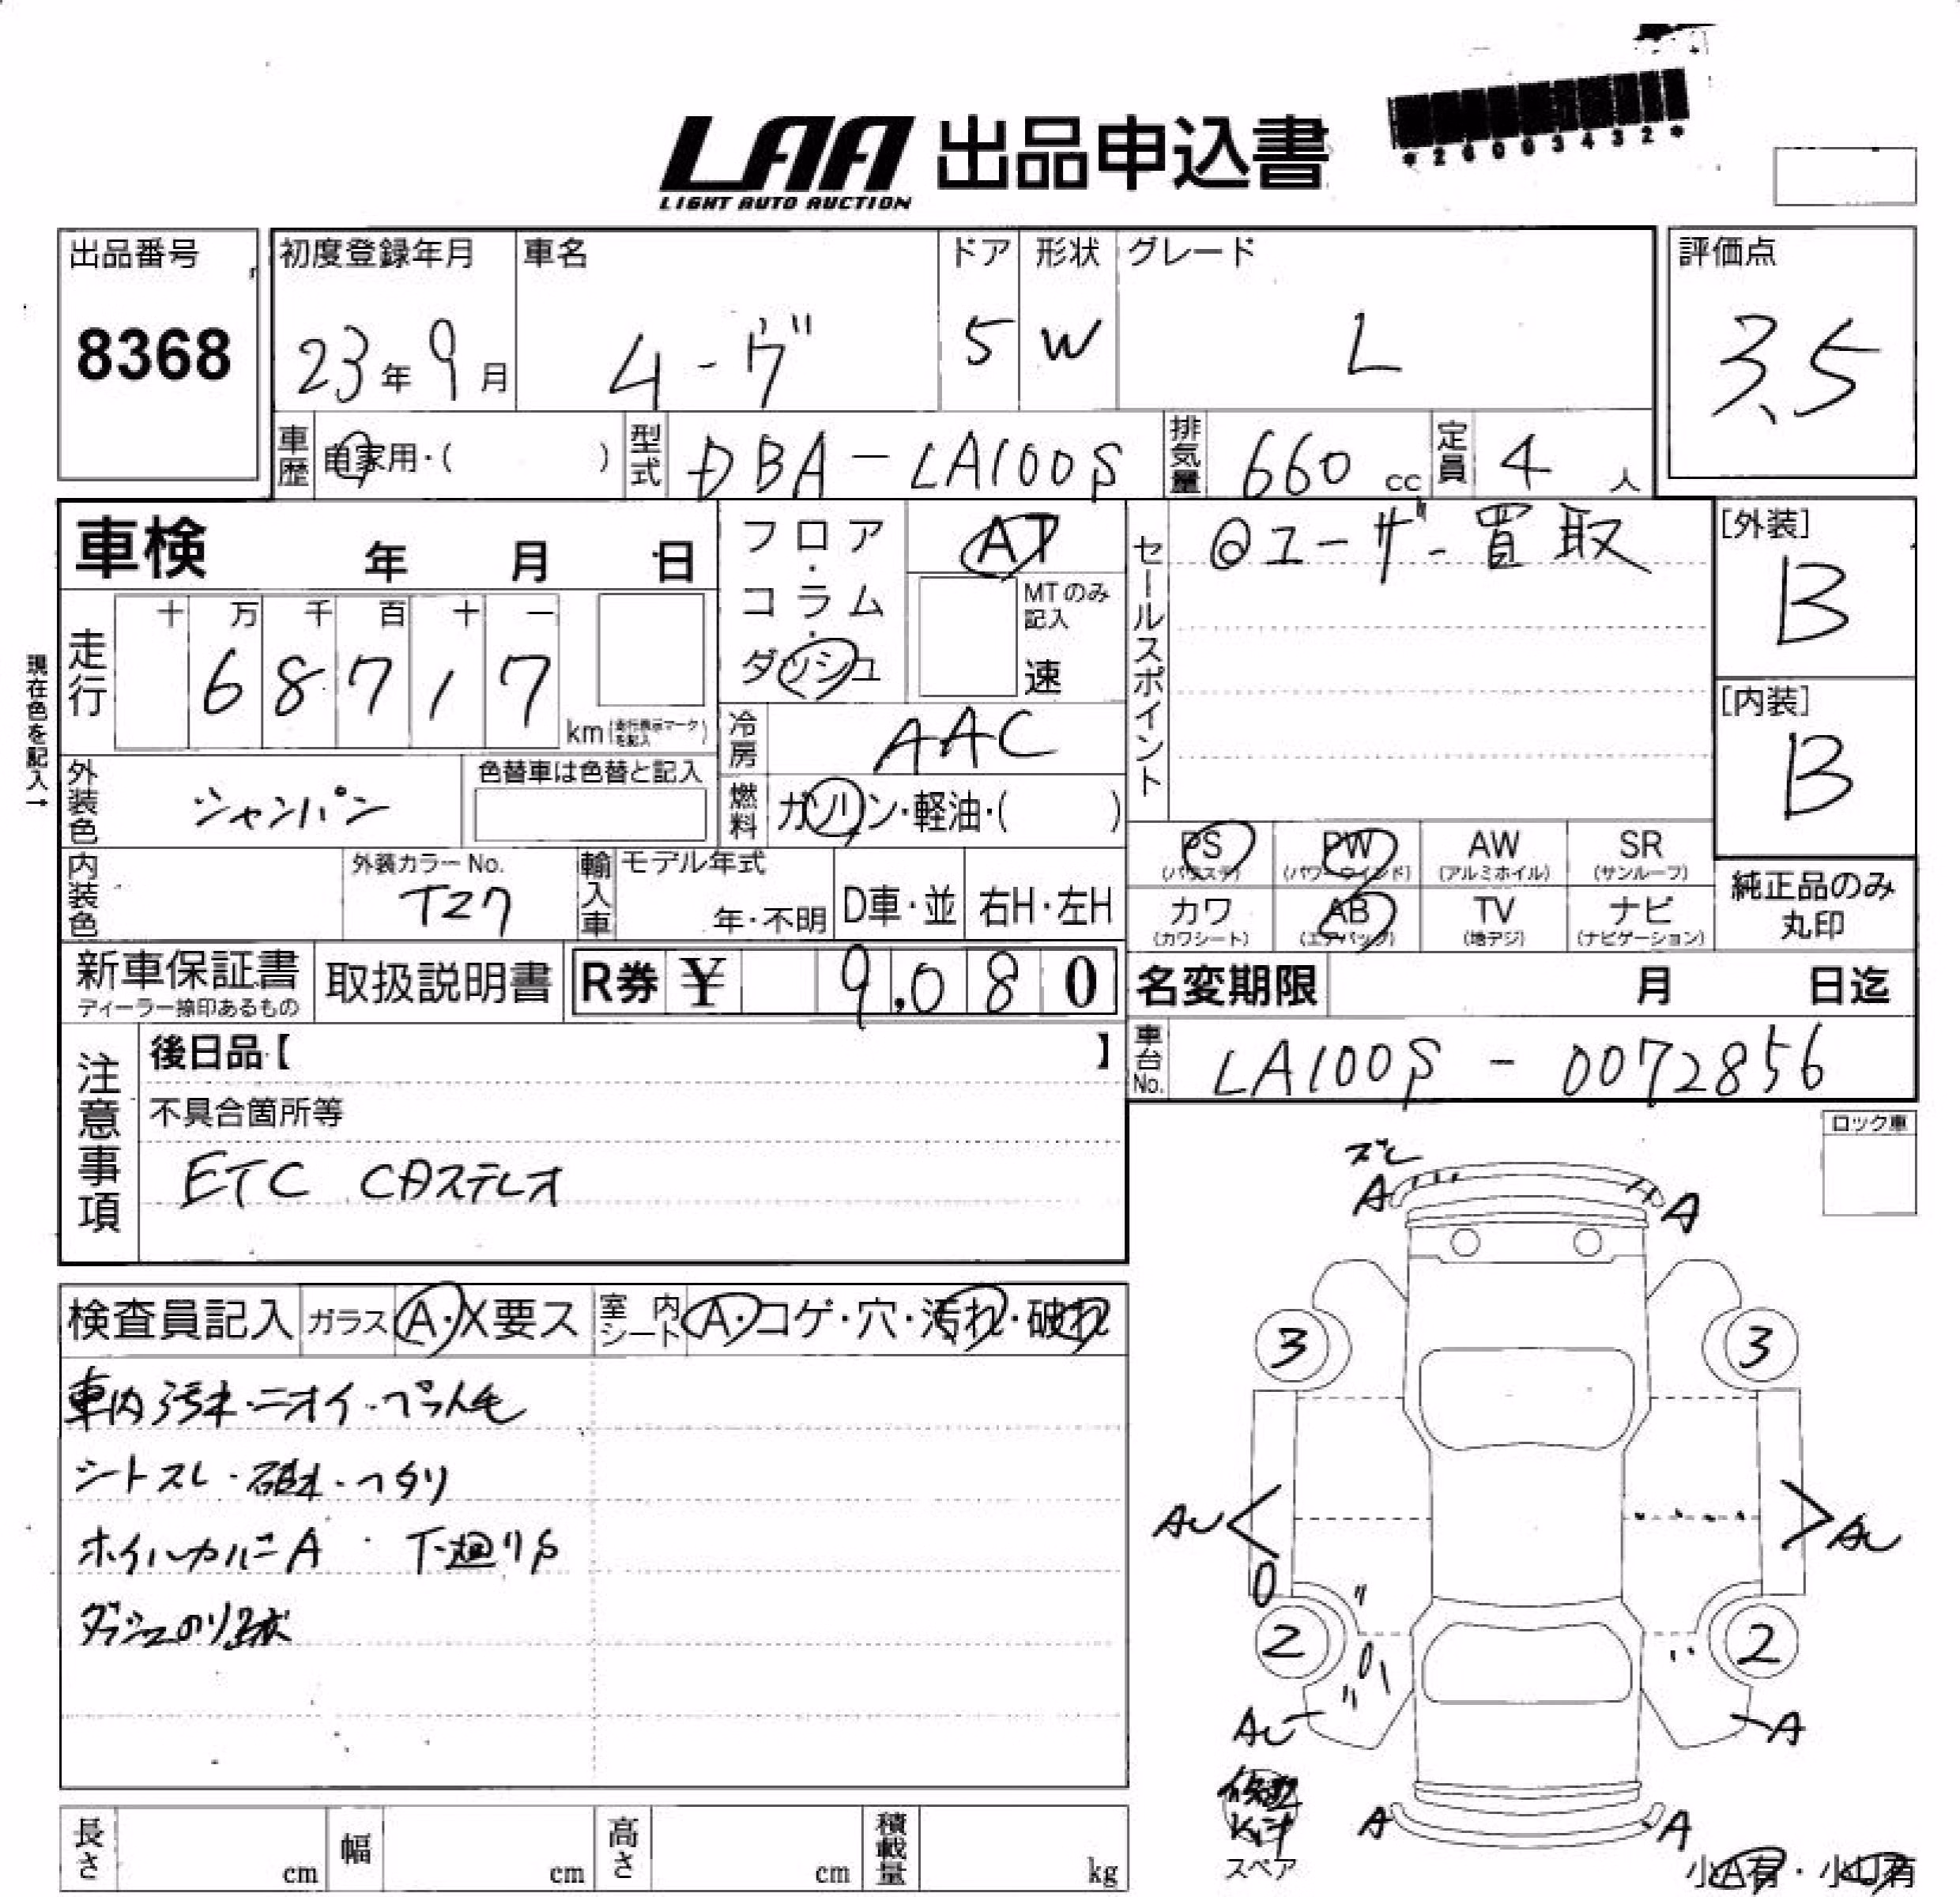 LAA 出品申込書
LIGHT AUTO AUCTION
*26003432*
出品番号
8368
初度登録年月
23年9月
車名
ムーヴ
ドア
5
形状
W
グレード
L
評価点
3.5
車歴 自家用・( )
型式 DBA-LA100S
排気量 660 cc
定員 4 人
車検 年 月 日
フロア・コラム・ダッシュ
AT
MTのみ記入
速
セールスポイント
◎ユーザー買取
[外装]
B
[内装]
B
現在色を記入→
走行
十 万 千 百 十 一
6 8 7 1 7
km (走行表示マークを記入)
冷房 AAC
外装色 シャンパン
色替車は色替と記入
燃料 ガソリン・軽油・( )
内装色
外装カラーNo.
T27
輸入車 モデル年式
年・不明
D車・並
右H・左H
PS (パワステ)
PW (パワーウインド)
AW (アルミホイル)
SR (サンルーフ)
カワ (カワシート)
AB (エアバッグ)
TV (地デジ)
ナビ (ナビゲーション)
純正品のみ
丸印
新車保証書
ディーラー捺印あるもの
取扱説明書
R券 ¥ 9,080
名変期限 月 日迄
車台No. LA100S-0072856
注意事項
後日品【 】
不具合箇所等
ETC CDステレオ
ロック車
検査員記入
ガラス A・X要ス
室内シート A・コゲ・穴・汚れ・破れ
車内汚れ・ニオイ・ペット毛
シートスレ・破れ・ヘタリ
ホイールカバーA 下廻りS
ダッシュのり跡
ズレ
A A
3 3
AU AU
2 2
AU A
修理
Kit
スペア
A A
小A有・小U有
長さ cm
幅 cm
高さ cm
積載量 kg